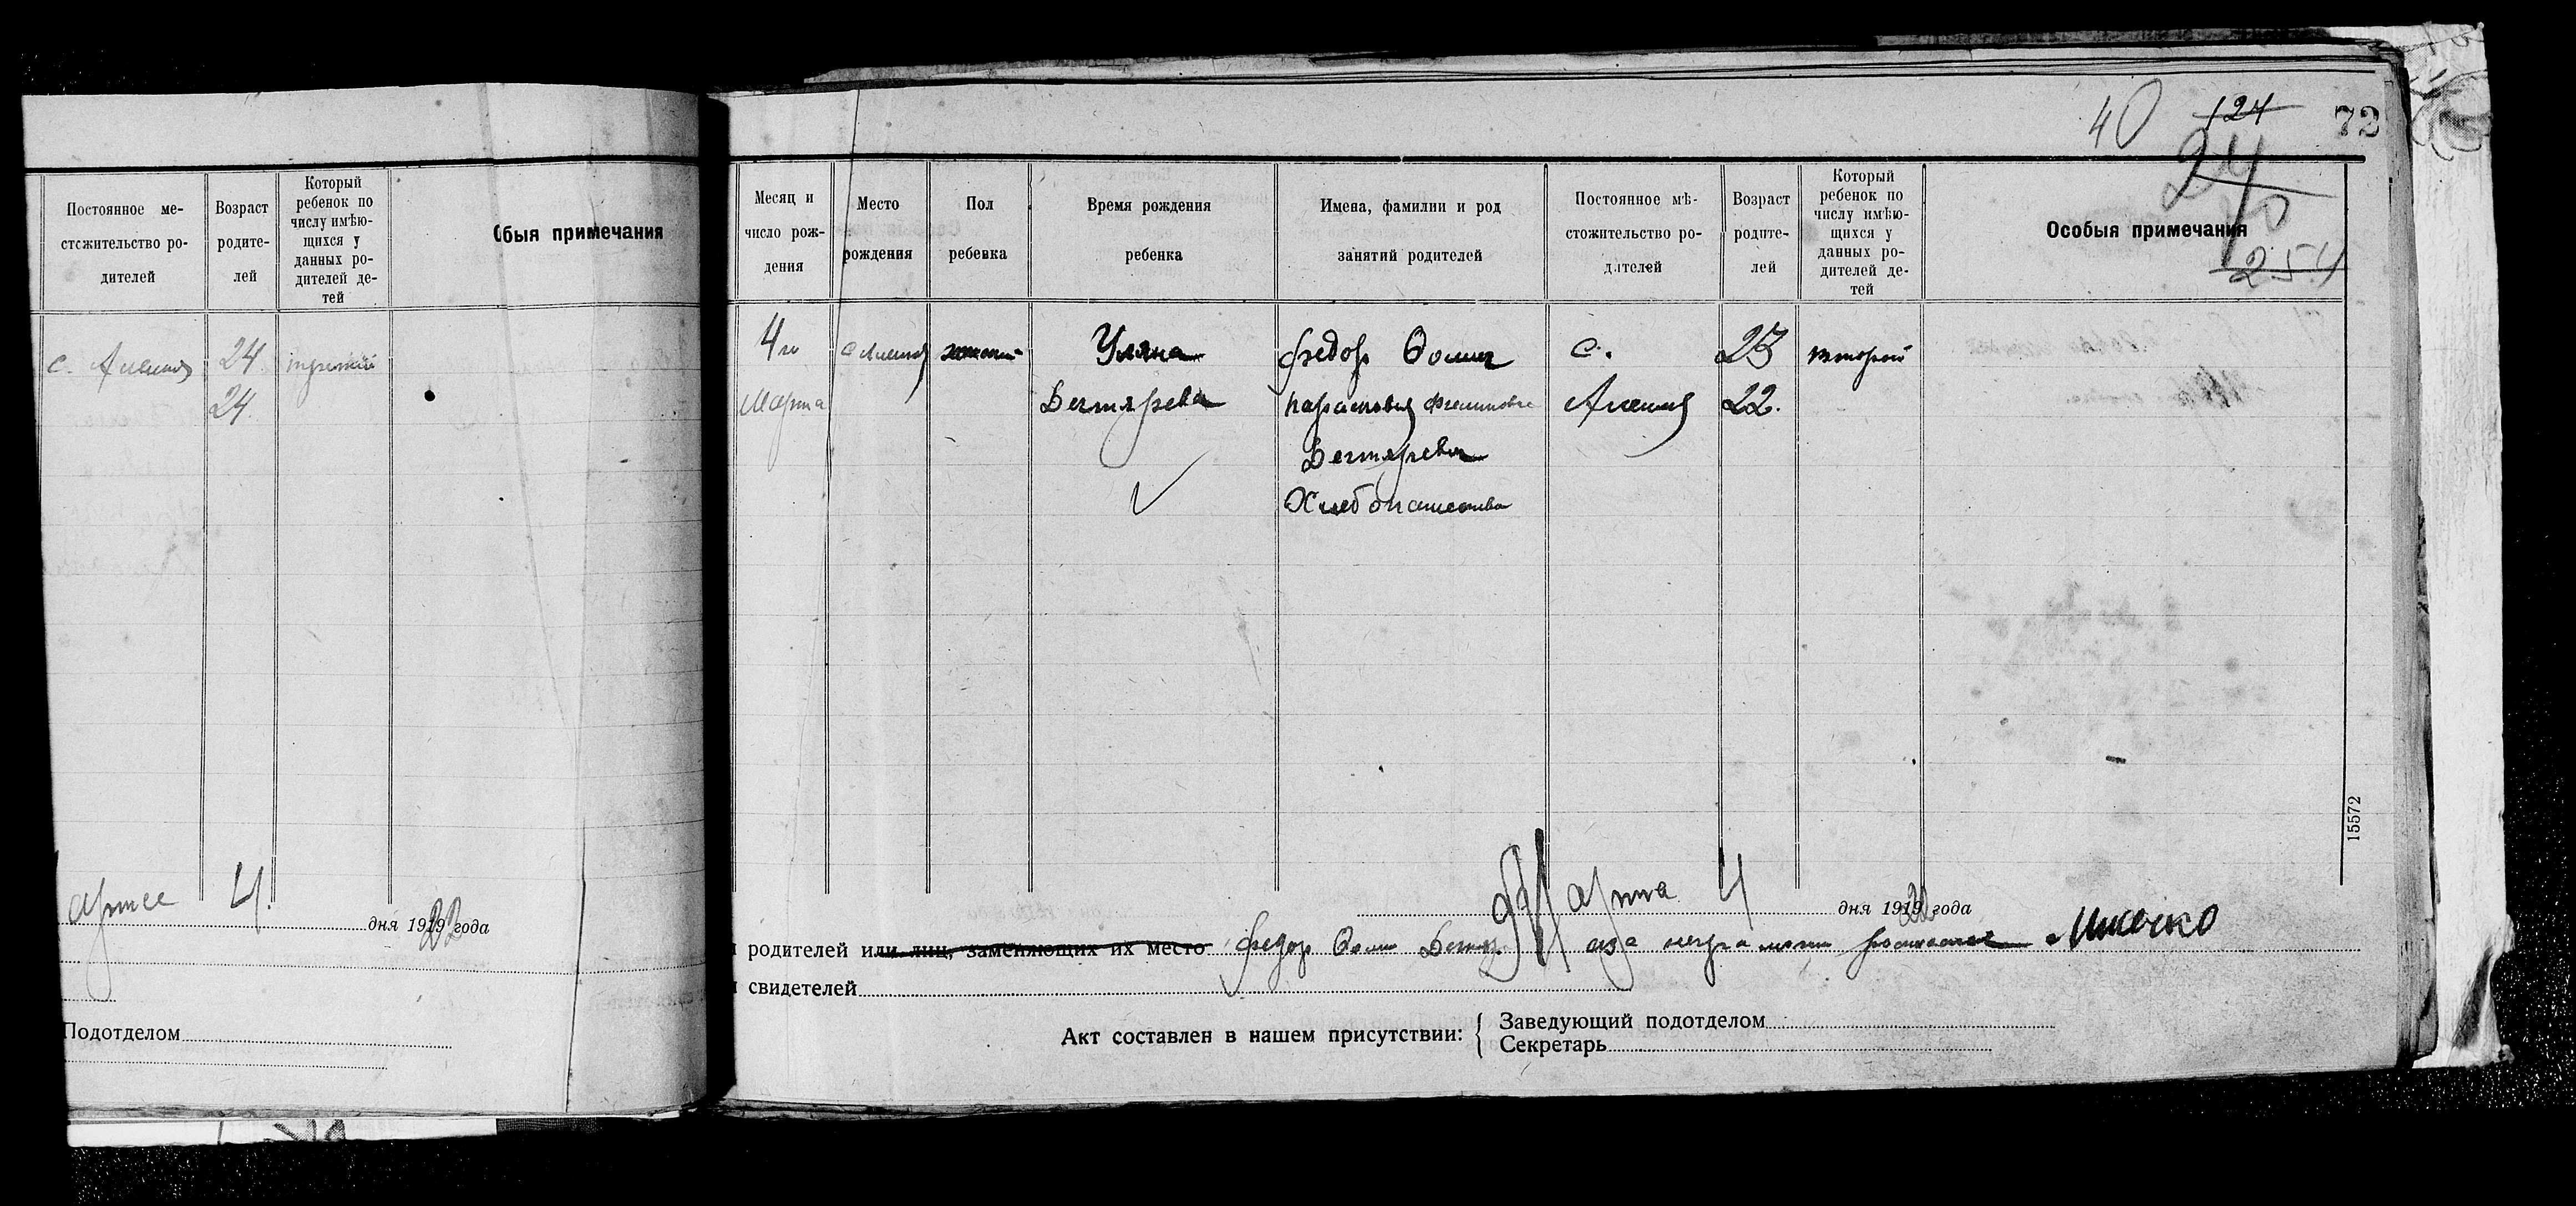 Постоянное ме-
стожительство ро-
дителей
Возраст
родите-
лей
Который
ребенок по
числу имѣю-
щихся у
данных ро-
дителей де-
тей
обыя примечания
с.
24
третий
24.
4.
дня 1919 года
22
Подотделом
40
124
72
24
254
Месяц и
число рож-
дения
Место
рождения
Пол
ребенка
Время рождения
ребенка
Имена, фамилии и род
занятий родителей
Постоянное мѣ-
стожительство ро-
дителей
Возраст
родите-
лей
Который
ребенок по
числу имѣю-
щихся у
данных ро-
дителей де-
тей
Особыя примечания
4го
Марта
с
женский
Уляна
Дегтярева
Федор Фомич
Парасковья
Дегтярева
Хлебопашества
с.
23
22.
второй
15572
Марта 4 дня 1919 года
22
родителей или лиц, заменяющих их место Федор Фом Дегтя
за неграмотн
свидетелей
Акт составлен в нашем присутствии:
Заведующий подотделом
Секретарь